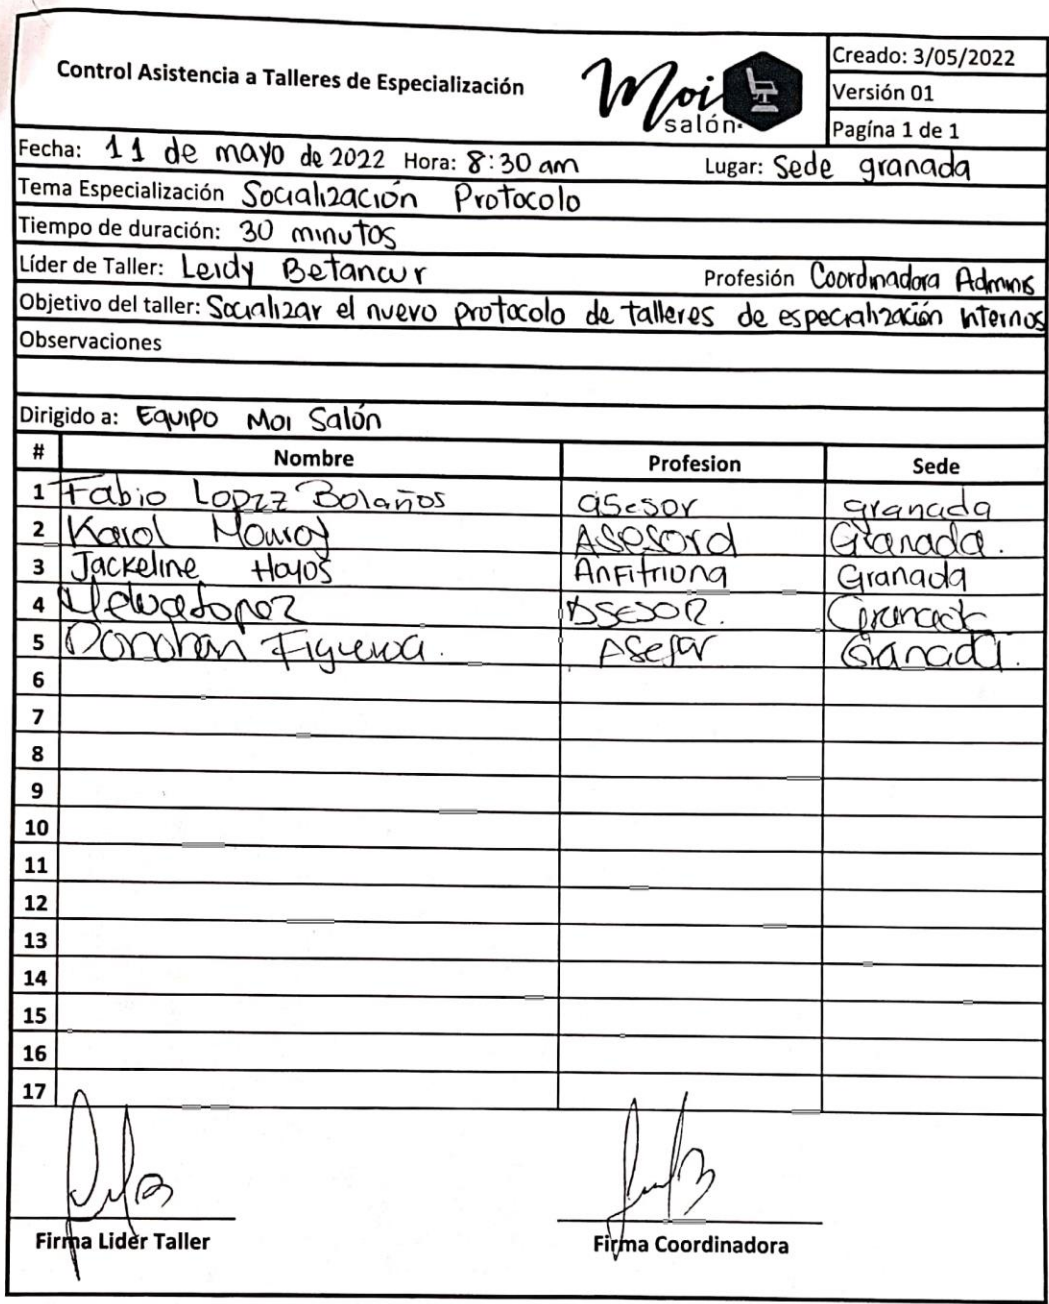 Control Asistencia a Talleres de Especialización
Moi
salón.
Creado: 3/05/2022
Versión 01
Pagína 1 de 1
Fecha: 11 de mayo de 2022 Hora: 8:30 am Lugar: Sede granada
Tema Especialización Socialización Protocolo
Tiempo de duración: 30 minutos
Líder de Taller: Leidy Betancur Profesión Coordinadora Adminis
Objetivo del taller: Socializar el nuevo protocolo de talleres de especialización internos
Observaciones
Dirigido a: Equipo Moi Salón
# Nombre Profesion Sede
1 Fabio Lopez Bolaños asesor granada
2 Karol Monroy Asesora Granada.
3 Jackeline Hoyos Anfitriona Granada
4 Lopez Asesor. Granada
5 Figueroa. Asesor Granada.
6
7
8
9
10
11
12
13
14
15
16
17
Firma Lider Taller Firma Coordinadora